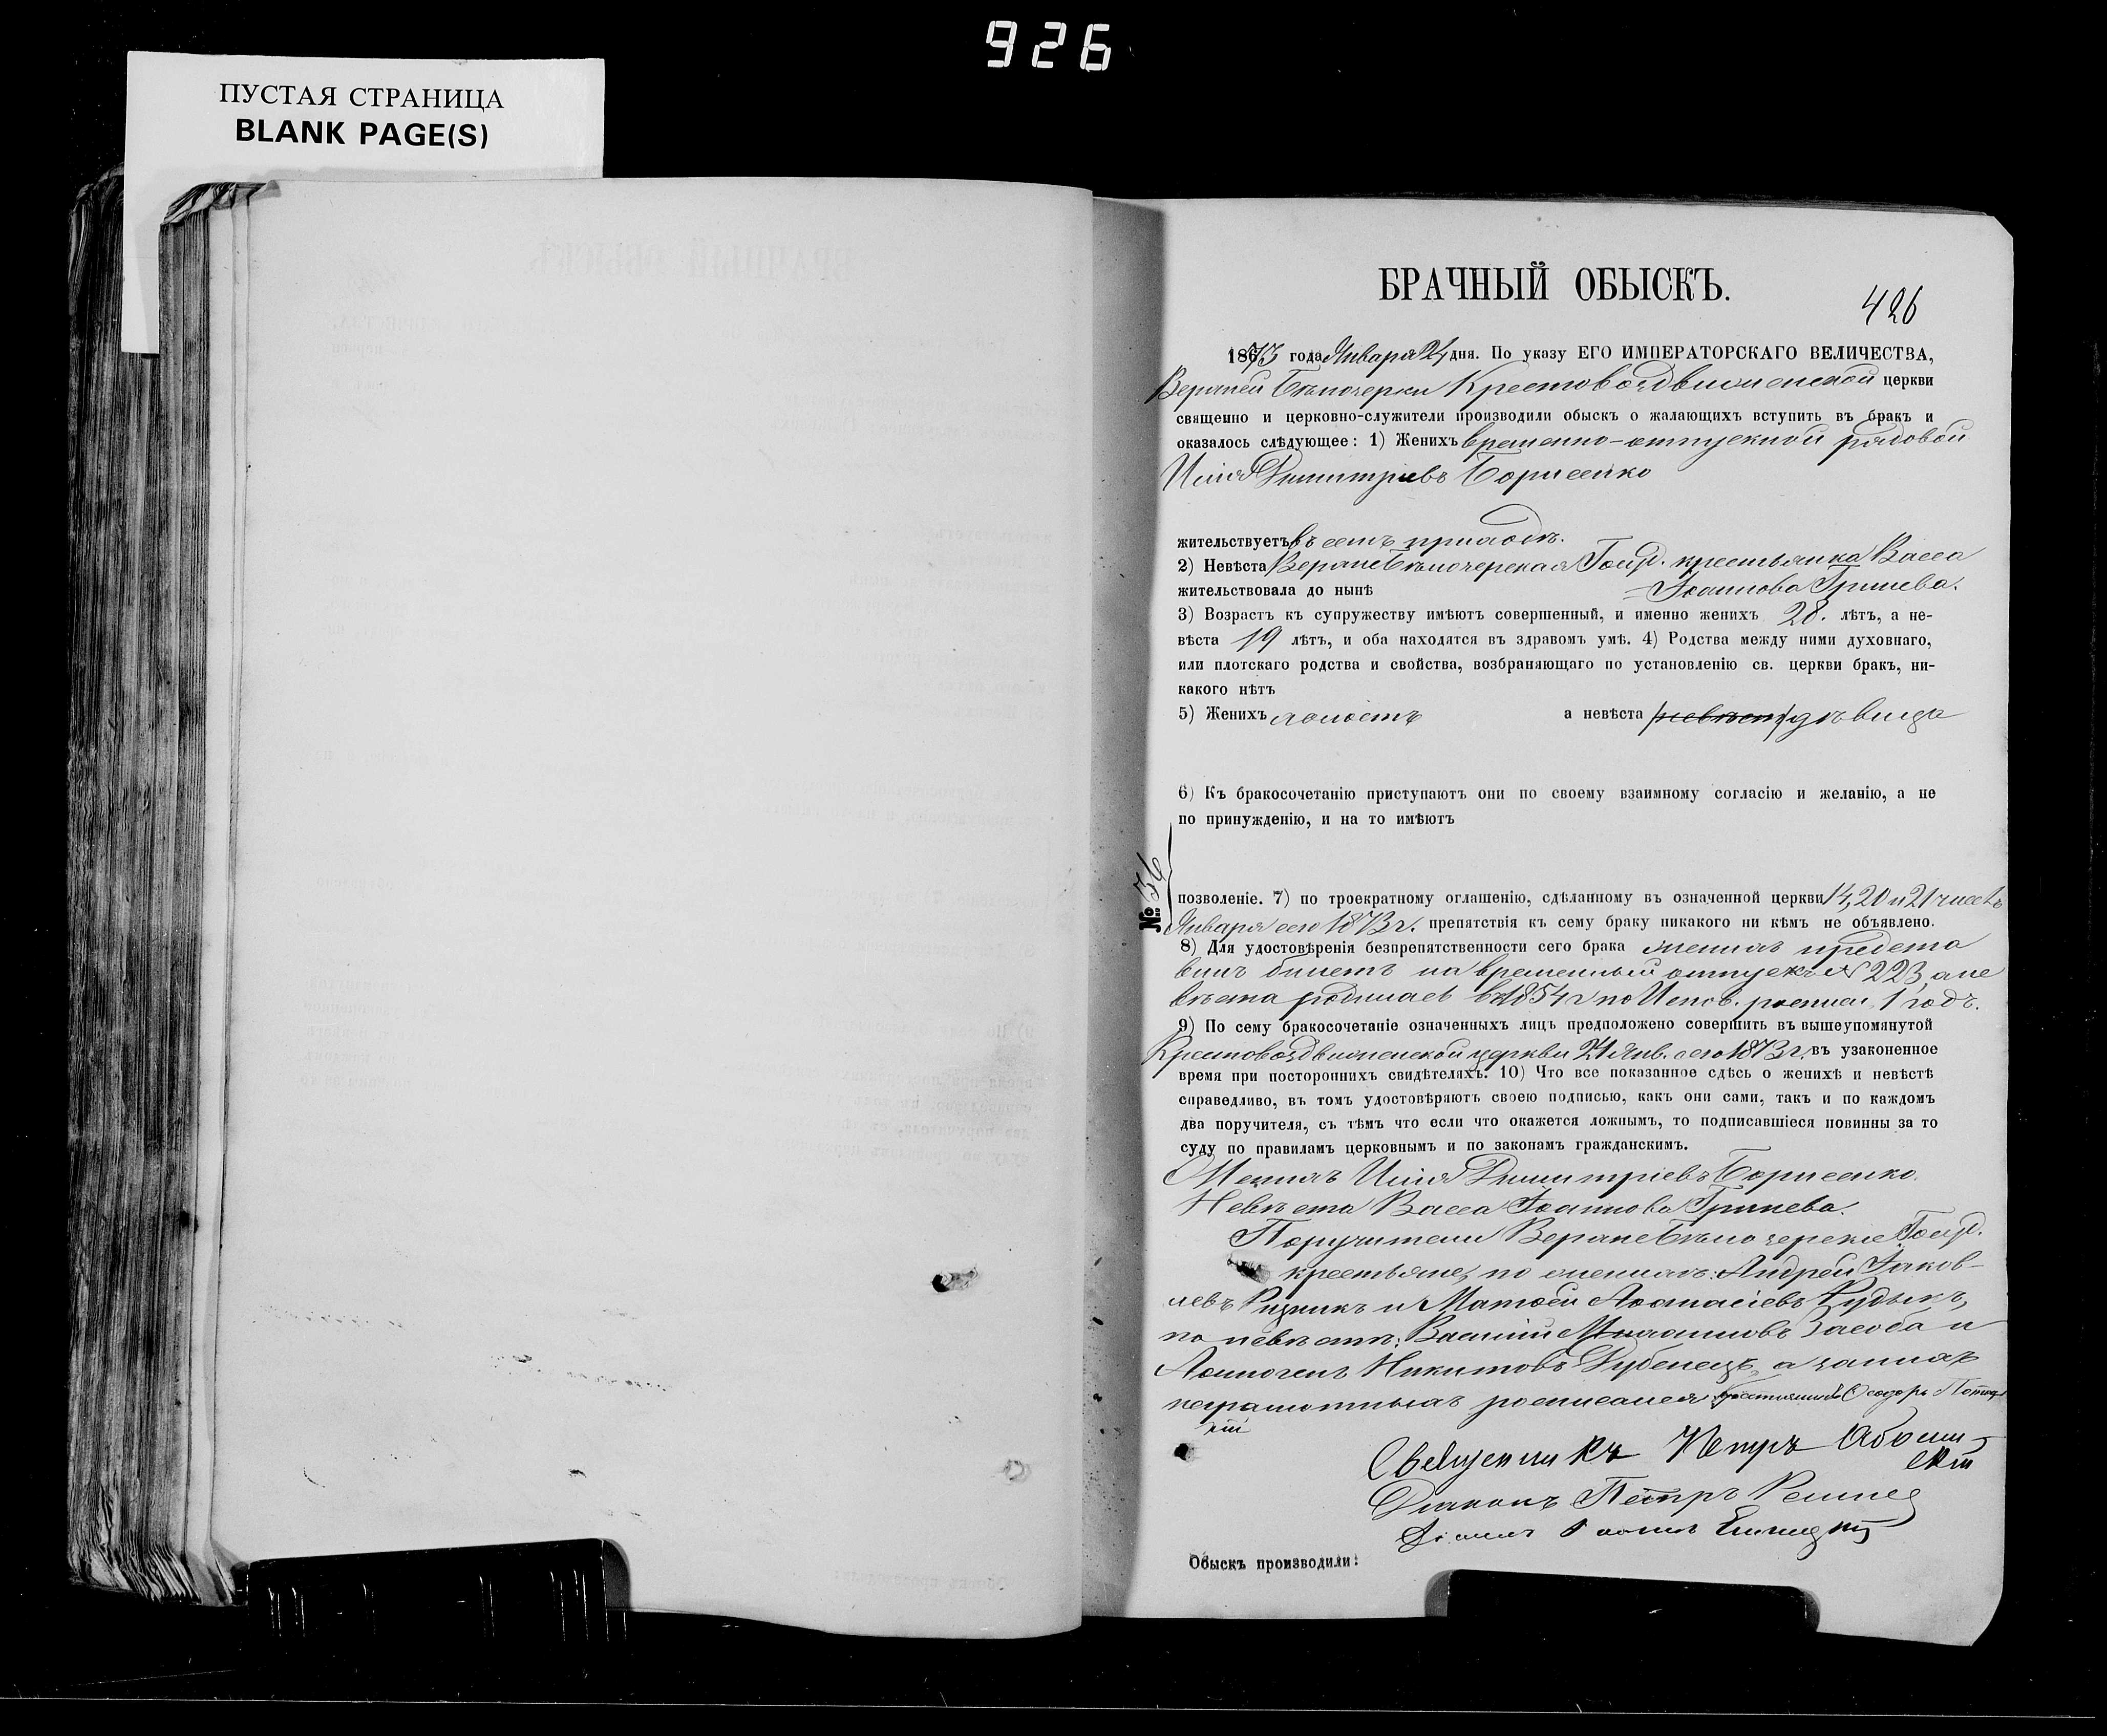 926
ПУСТАЯ СТРАНИЦА
BLANK PAGE(S)
БРАЧНЫЙ ОБЫСКЪ.
426
1873 года Января 24 дня. По указу ЕГО ИМПЕРАТОРСКАГО ВЕЛИЧЕСТВА,
Верхней Бѣлозерки Крестовоздвиженской церкви
священно и церковно-служители производили обыскъ о жалающихъ вступить въ бракъ и
оказалось слѣдующее: 1) Женихъ временно-отпускной рядовой
Илія Димитріевъ Борисенко
жительствуетъ въ семъ приходѣ.
2) Невѣста Верхнебѣлозерская Госуд. крестьянка Васса
жительствовала до нынѣ = Іоаннова Гринева.
3) Возрастъ къ супружеству имѣютъ совершенный, и именно женихъ 28. лѣтъ, а не-
вѣста 19 лѣтъ, и оба находятся въ здравомъ умѣ. 4) Родства между ними духовнаго,
или плотскаго родства и свойства, возбраняющаго по установленію св. церкви бракъ, ни-
какого нѣтъ
5) Женихъ холостъ а невѣста дѣвица
6) Къ бракосочетанію приступаютъ они по своему взаимному согласію и желанію, а не
по принужденію, и на то имѣютъ
№ 36
позволеніе. 7) по троекратному оглашенію, сдѣланному въ означенной церкви 14, 20 и 21 числъ
Января сего 1873 г. препятствія къ сему браку никакого ни кѣмъ не объявлено.
8) Для удостовѣренія безпрепятственности сего брака женихъ предста
вилъ билетъ на временный отпускъ № 223, а не
вѣста родилась въ 1854 г. по Испов. росписи 1 годъ.
9) По сему бракосочетаніе означенныхъ лицъ предположено совершить въ вышеупомянутой
Крестовоздвиженской церкви 24 Янв. сего 1873 г. въ узаконенное
время при постороннихъ свидѣтеляхъ. 10) Что все показанное сдѣсь о женихѣ и невѣстѣ
справедливо, въ томъ удостовѣряютъ своею подписью, какъ они сами, такъ и по каждомъ
два поручителя, съ тѣмъ что если что окажется ложнымъ, то подписавшіеся повинны за то
суду по правиламъ церковнымъ и по законамъ гражданскимъ.
Женихъ Илія Димитріевъ Борисенко.
Невѣста Васса Іоаннова Гринева.
Поручители Верхнебѣлозерскіе Госуд.
крестьяне, по женихѣ: Андрей Іаков-
левъ Рицникъ и Матѳей Аѳанасіевъ Рудыкъ,
по невѣстѣ: Василій Засоба и
Аѳиногенъ Никитовъ Дубенецъ, а за нихъ
неграмотныхъ росписался Ѳеодоръ
Священникъ Петръ
скій
Діаконъ Петръ
Обыскъ производили: